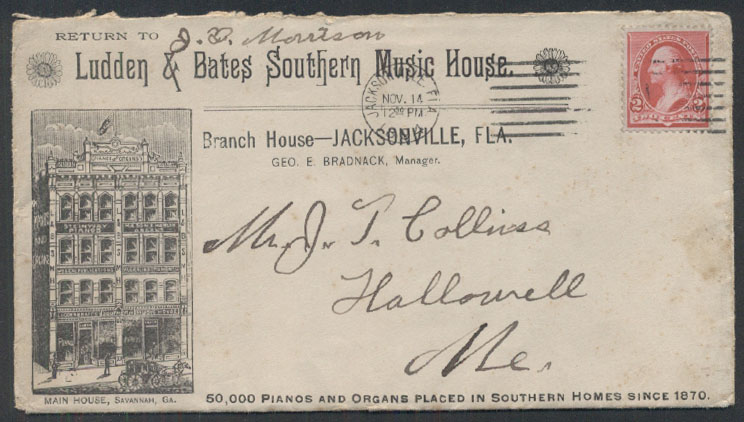 RETURN TO J. C. Morrison
Ludden & Bates Southern Music House.
JACKSONVILLE, FLA
NOV. 14
12 00 PM
2 2
Branch House—JACKSONVILLE, FLA.
GEO. E. BRADNACK, Manager.
STEINWAY
PIANOS
Mr. J. T. Collins
Hallowell
Me.
MAIN HOUSE, SAVANNAH, GA.
50,000 PIANOS AND ORGANS PLACED IN SOUTHERN HOMES SINCE 1870.